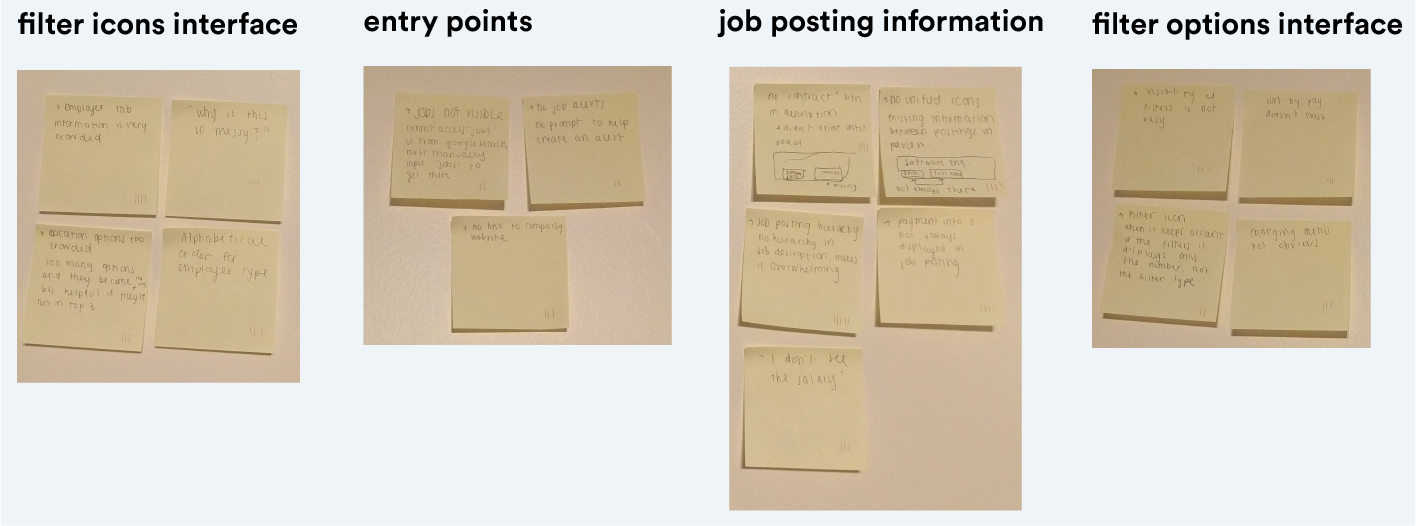 filter icons interface
→ Employer tab
information is very
crowded
"Why is this
so messy?"
→ Location options too
crowded
too many options
and they become
less helpful if they're
not in top 3
Alphabetical
order for
employer type
entry points
→ Jobs not visible
cannot access "jobs"
from google search
must manually
input "jobs" to
get there
→ no job alerts
no prompt to help
create an alert
→ no link to company
website
job posting information
no "contract" btn
in description
→ didn't know until
read
missing
→ no unified icons
missing information
between postings in
preview
Software Eng.
not always there
→ Job posting hierarchy
no hierarchy in
job description, makes
it overwhelming
→ payment info is
not always
displayed in
job posting
"I don't see
the salary"
filter options interface
→ visibility of
filters is not
easy
sort by pay
doesn't exist
→ Filter icon
when it keeps account
of the filters it
displays only
the number, not
the filter type
changing menu
not obvious